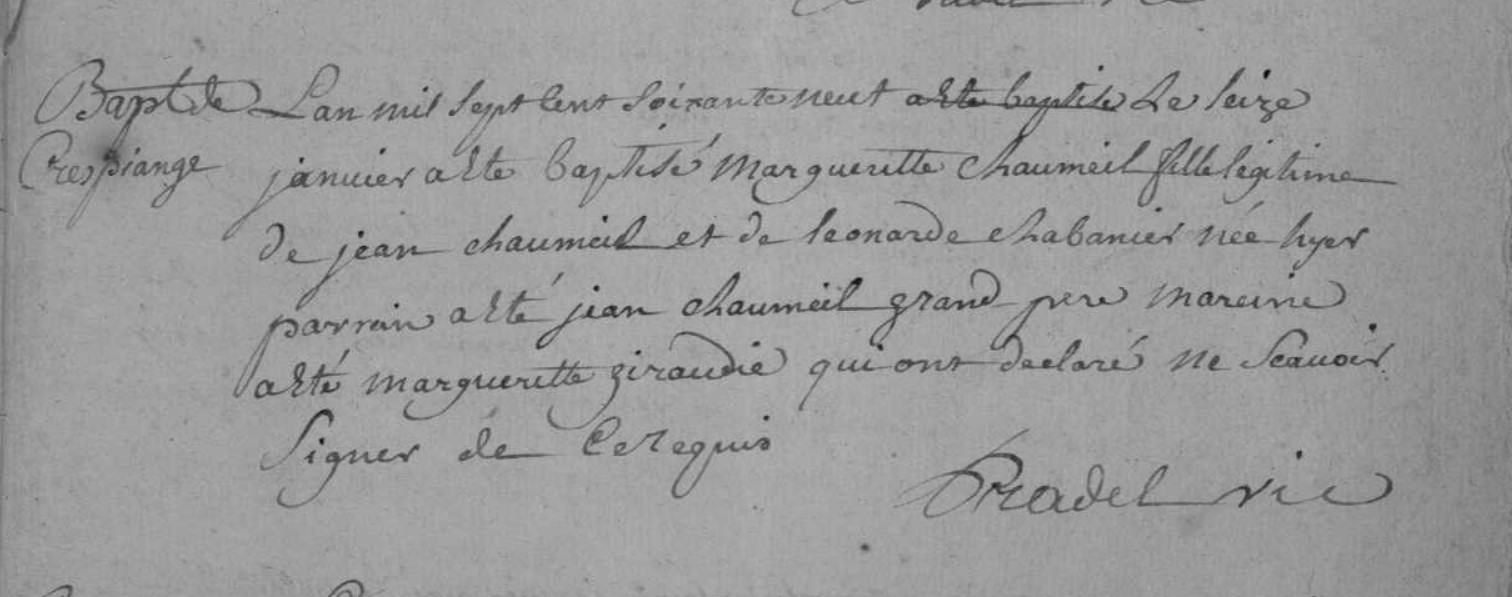 Bapt de Lan mil sept Cent soixante neuf a Ete baptisé Le seize
Crespiange janvier a Ete baptisé Margueritte Chaumeil fille legitime
de jean chaumeil et de leonarde chabanier née hyer
parrain a Eté jean Chaumeil grand pere mareine
a Eté margueritte giraudie qui ont declaré ne scavoir
signer de Ce Requis
Pradel vic